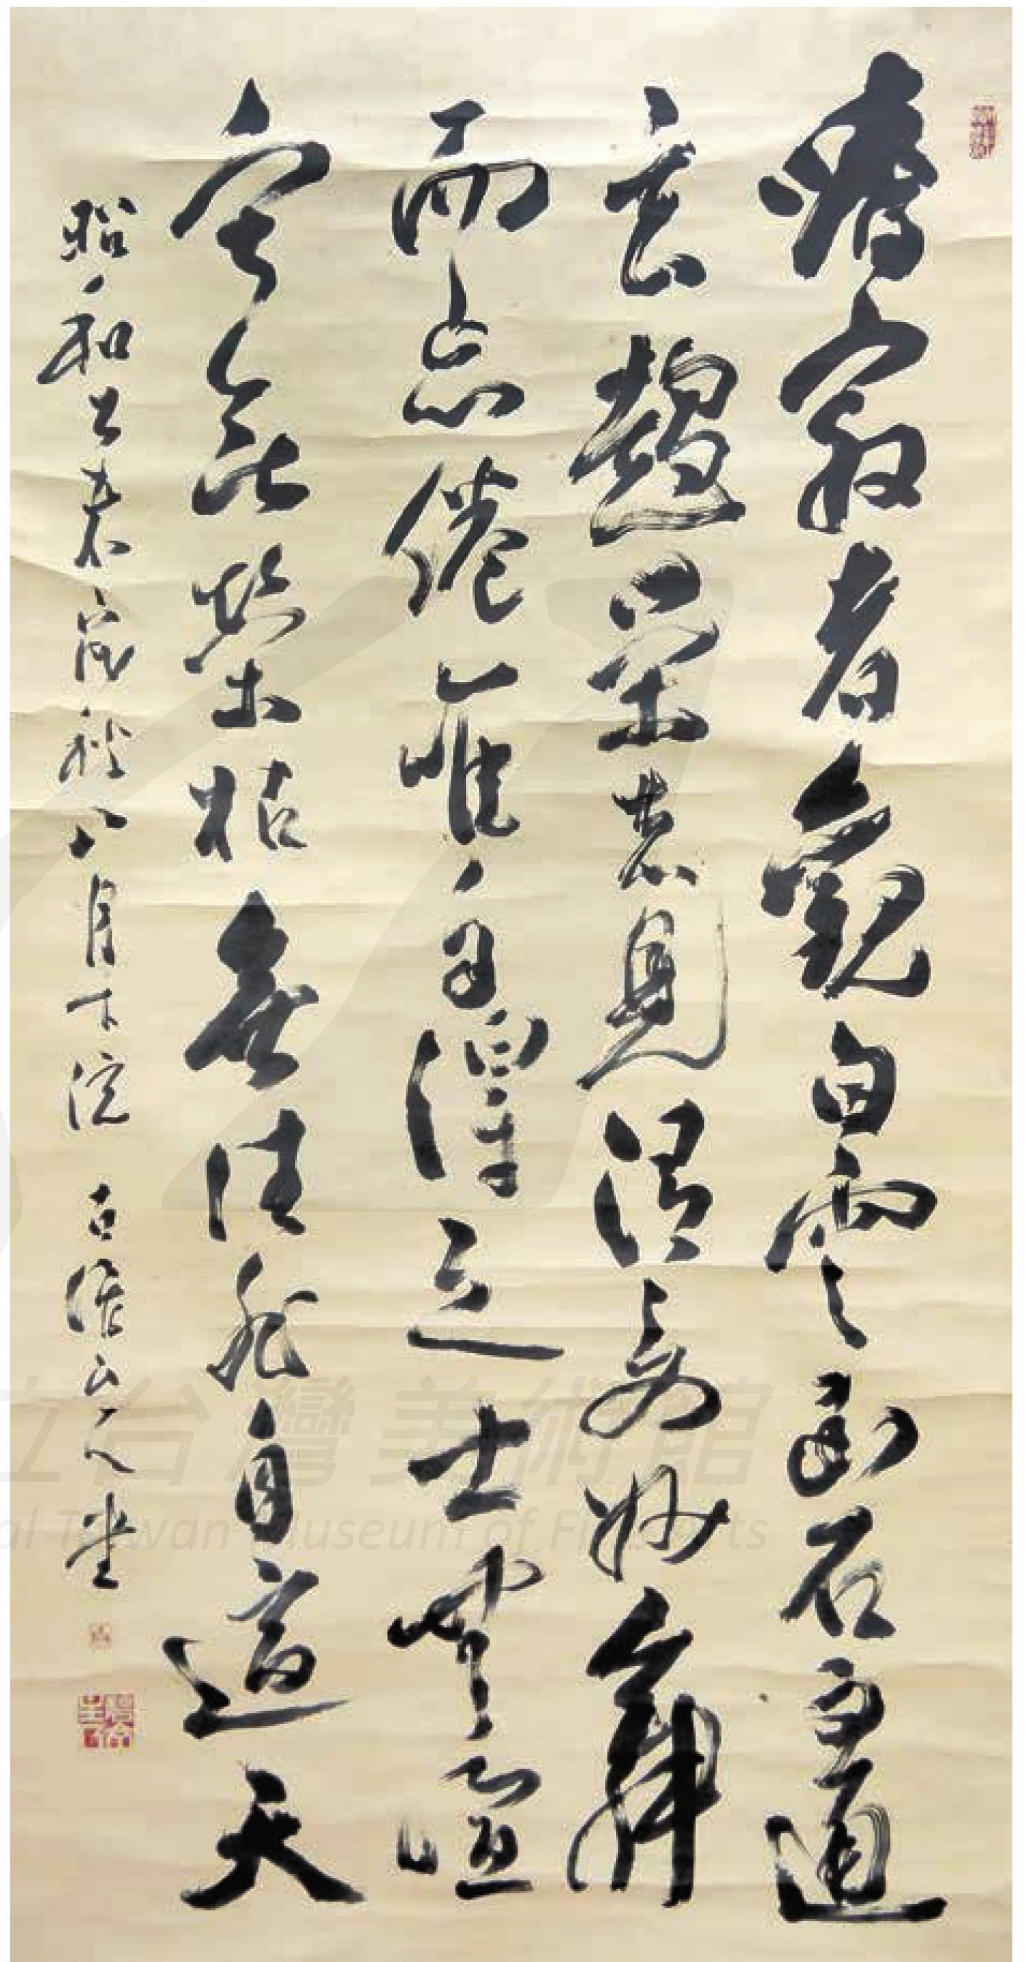 嗜寂者觀白雲幽石而通
玄趨榮者見清歌妙舞
而忘倦唯自得之士無喧
寂無榮枯無往非自適天
昭和歲秋八月浣山人
立台灣美術館
al Taiwan Museum of Fine Arts